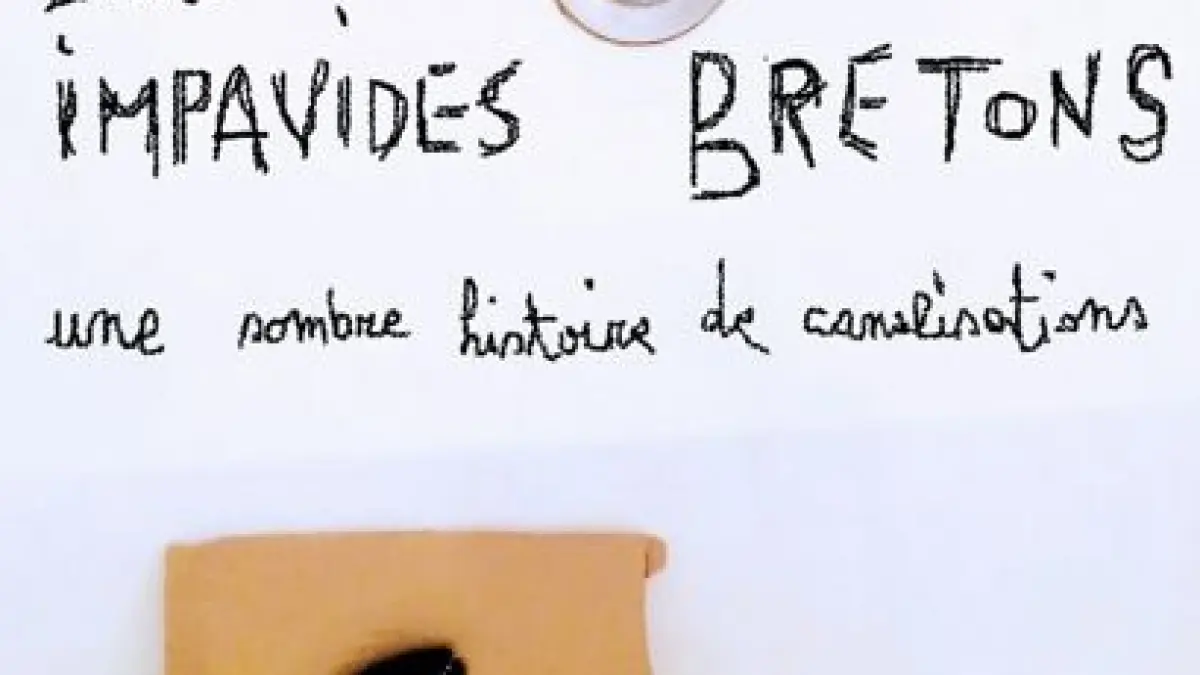 IMPAVIDES BRETONS
une sombre histoire de canalisations